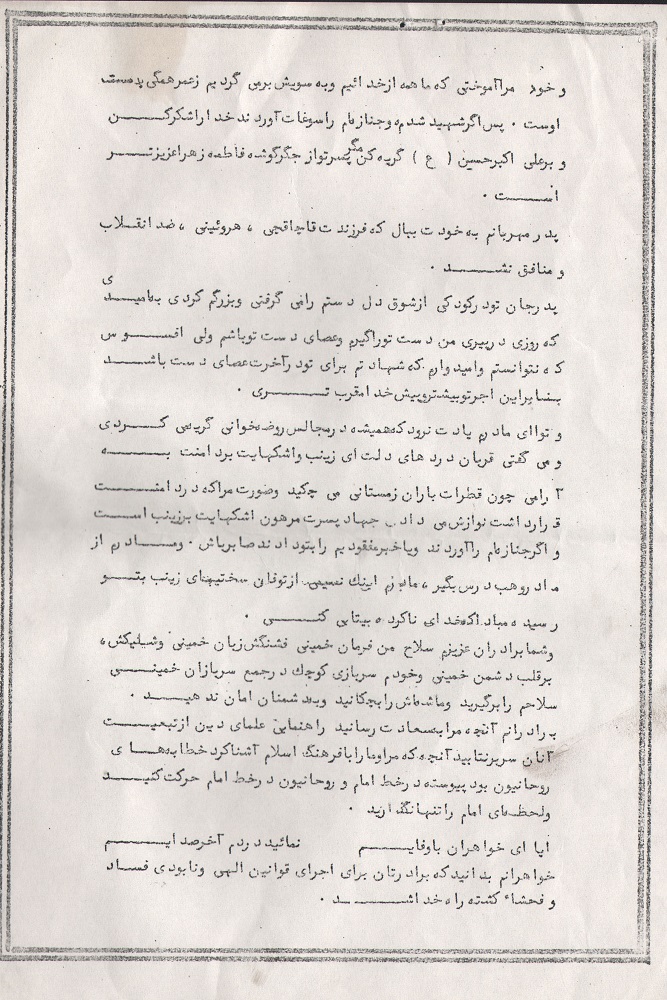 و خود مراآموختی که ما همه از خدائیم وبه سویش برمی گردیم زعمر همگی بدست
اوست . پس اگر شهید شدم و جنازه ام را سوغات آوردند خدا را شکر کن
و بر علی اکبر حسین ( ع ) گریه کن مگر پسر تو از جگر گوشه فاطمه زهرا عزیزتر
است .
پدر مهربانم به خودت ببال که فرزندت قاچاقچی ، هروئینی ، ضد انقلاب
و منافق نشد .
پدرجان تو در کودکی از شوق دل دستم را می گرفتی وبزرگم کردی به امیدی
که روزی در پیری من دست تو را گیرم وعصای دست تو باشم ولی افسوس
که نتوانستم وامیدوارم که شهادتم برای تو در آخرت عصای دست باشد
بنابراین اجر تو بیشتر و پیش خدا مقرب تری .
و تو ای مادرم یادت نرود که همیشه در مجالس روضه خوانی گریه می کردی
و می گفتی قربان درد های دلت ای زینب واشکهایت بر دامنت به
آرامی چون قطرات باران زمستانی می چکید وصورت مرا که در دامنت
قرار داشت نوازش می داد جهاد پسرت مرهون اشکهایت بر زینب است
و اگر جنازه ام را آوردند ویا خبر مفقودیم را بتو دادند صابر باش . ومادرم از
مادر وهب درس بگیر ، مادرم اینک نسیمی از توفان سختیهای زینب بتو
رسیده مبادا که خدای ناکرده بیتابی کنی .
وشما برادران عزیزم سلاح من فرمان خمینی فشنگش زبان خمینی وشلیکش
بر قلب دشمن خمینی وخودم سربازی کوچک در جمع سربازان خمینی
سلاحم را برگیرید وماشه اش را بچکانید وبه دشمنان امان ندهید .
برادرانم آنچه مرا بسعادت رسانید راهنمایی علمای دین از تبعیت
آنان سر برنتابید آنچه که مرا و ما را با فرهنگ اسلام آشنا کرد خطابه های
روحانیون بود پیوسته در خط امام و روحانیون در خط امام حرکت کنید
ولحظه ای امام را تنها نگذارید .
ایا ای خواهران باوفایم نمائید در دم آخر صدایم
خواهرانم بدانید که برادرتان برای اجرای قوانین الهی ونابودی فساد
و فحشاء کشته راه خدا شد .